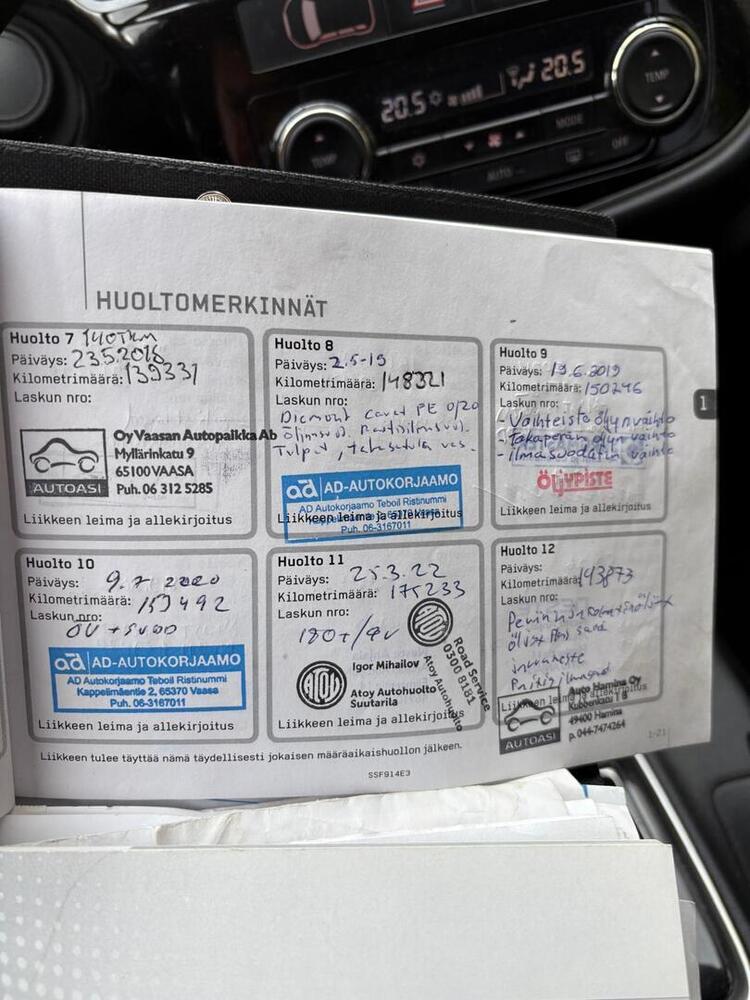 20.5
20.5
TEMP
TEMP
MODE
AUTO
OFF
HUOLTOMERKINNÄT
1
Huolto 7 140TKM
Päiväys: 23.5.2018
Kilometrimäärä: 139331
Laskun nro:
Oy Vaasan Autopaikka Ab
Myllärinkatu 9
65100 VAASA
Puh. 06 312 5285
AUTOASI
Liikkeen leima ja allekirjoitus
Huolto 8
Päiväys: 2.5-19
Kilometrimäärä: 148321
Laskun nro:
PE 0/20
Tulpat,
ad AD-AUTOKORJAAMO
AD Autokorjaamo Teboil Ristinummi
Kappelimäentie 2, 65370 Vaasa
Puh. 06-3167011
Liikkeen leima ja allekirjoitus
Huolto 9
Päiväys: 19.6.2019
Kilometrimäärä: 150246
Laskun nro:
- Vaihteisto öljyn vaihto
- Takaperän öljyn vaihto
- ilmasuodatin vaihto
ÖLJYPISTE
Liikkeen leima ja allekirjoitus
Huolto 10
Päiväys: 9.7 2020
Kilometrimäärä: 159492
Laskun nro:
ad AD-AUTOKORJAAMO
AD Autokorjaamo Teboil Ristinummi
Kappelimäentie 2, 65370 Vaasa
Puh. 06-3167011
Liikkeen leima ja allekirjoitus
Huolto 11
Päiväys: 25.3.22
Kilometrimäärä: 175233
Laskun nro:
180t/
Igor Mihailov
ATOY
Atoy Autohuolto
Suutarila
Road Service
0300 8181
Atoy Autohuolto
Liikkeen leima ja allekirjoitus
Huolto 12
Päiväys:
Kilometrimäärä: 193873
Laskun nro:
Liikkeen leima ja allekirjoitus
Auto Hamina Oy
49400 Hamina
p. 044-7474264
AUTOASI
Liikkeen tulee täyttää nämä täydellisesti jokaisen määräaikaishuollon jälkeen.
1-21
SSF914E3